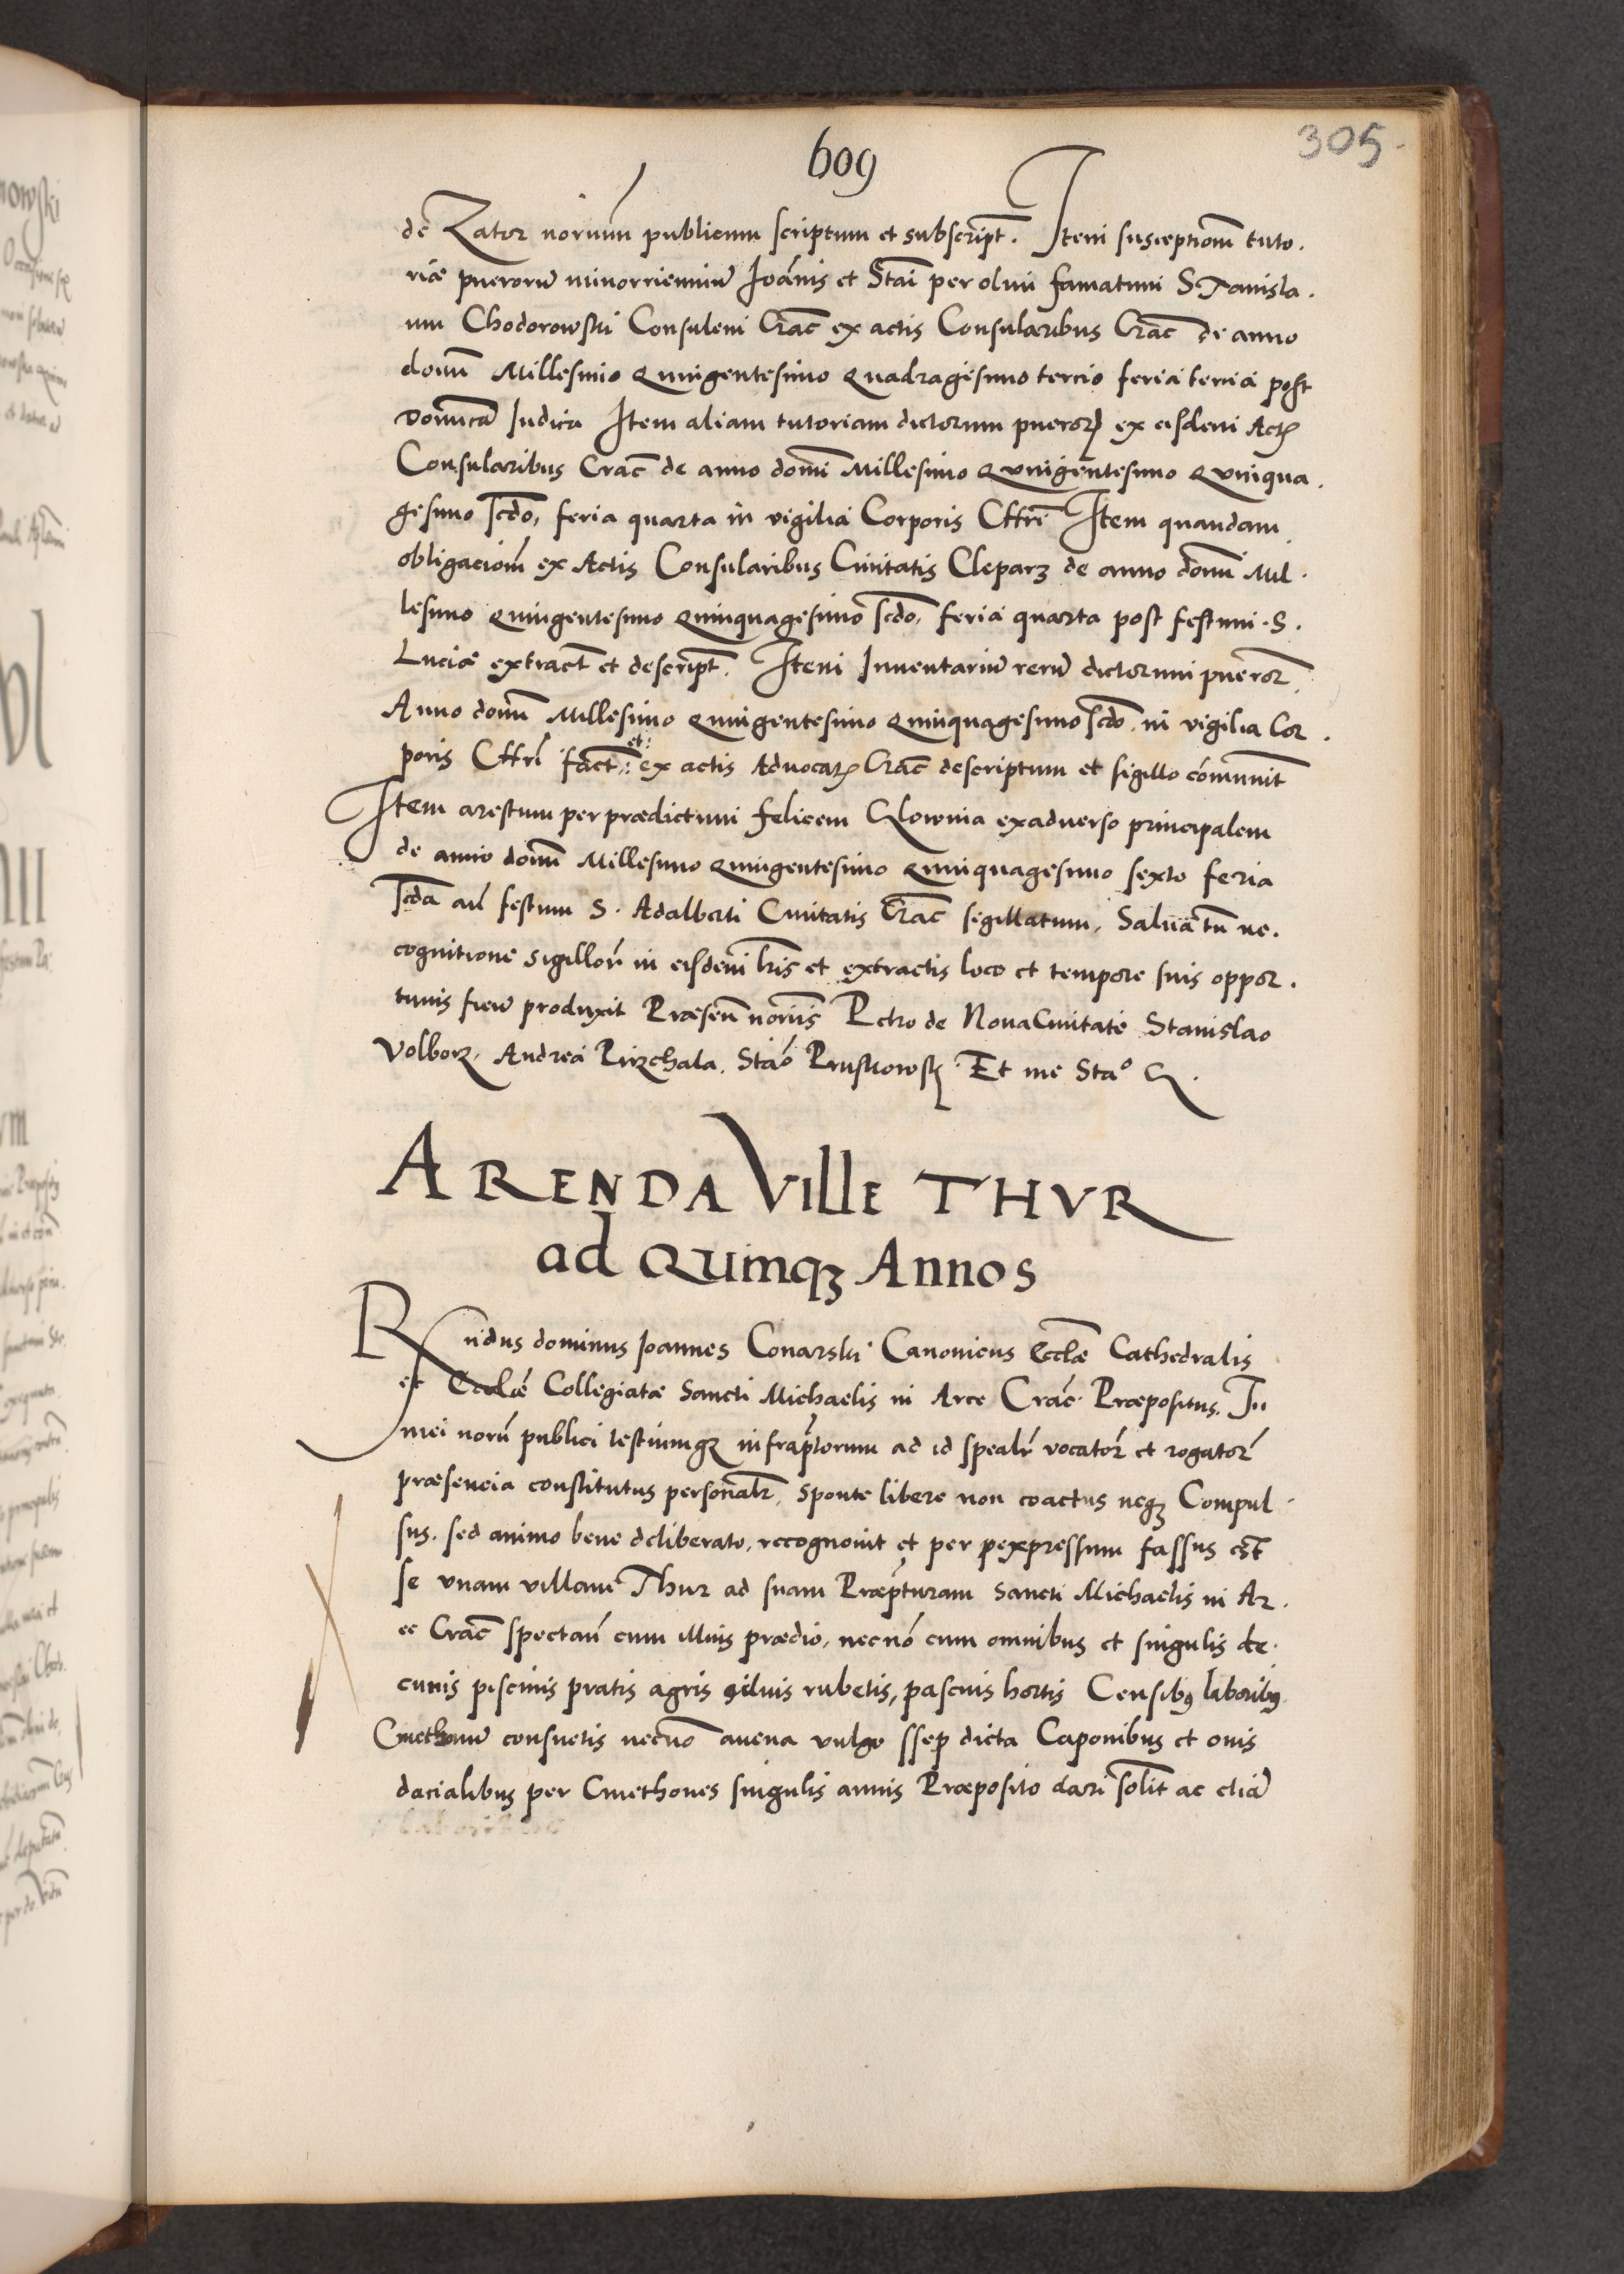 305
609
de Zator norium publicum scriptum et subscript. Item susceptionem tuto.
riæ puerorum minorrennium Ioānis et Stāi per olim famatum Stanisla.
um Chodorowski Consulem Crac̄ ex actis Consularibus Crac̄ de anno
domī Millesimo Quingentesimo Quadragesimo tercio feria tercia post
Domicā Iudica Item aliam tutoriam dictorum pueror̄ ex eisdem Actis
Consularibus Crac̄ de anno domī Millesimo Quingentesimo Quinqua.
gesimo scdo, feria quarta in vigilia Corporis Chri Item quandam
obligaciom̄ ex Actis Consularibus Civitatis Cleparz de anno domī Mil.
lesimo Quingentesimo Quinquagesimo scdo, feria quarta post festum S.
Luciæ extract̄ et descript̄. Item Inventariū rerū dictorum pueror̄
Anno domī Millesimo Quingentesimo Quinquagesimo scdo in vigilia Cor.
poris Chri fact̄ et ex actis Advocat̄ Crac̄ descriptum et sigillo cōmunit̄
Item arestum per prædictum felicem Glownia exadverso principalem
de anno domī Millesimo Quingentesimo Quinquagesimo sexto feria
scda añ festum S. Adalberti Civitatis Crac̄ sigillatum, Salva tn̄ re.
cognitione sigillor̄ in eisdem lris et extractis loco et tempore suis oppor.
tunis fieñ produxit Præsen̄ noriis Petro de Nova Civitate Stanislao
Volborz, Andrea Pirzchala, Stāo Pruskowsky Et me Stao G.
ARENDA VILLE THVR
ad QUINQ₃ ANNOS
Rn̄dus dominus Ioannes Conarski Canonicus Ecclæ Cathedralis
et Ecclæ Collegiatæ Sancti Michaelis in Arce Crac̄ Præpositus, In
mei norii publici testiumq₃ infraptorum ad id spealr̄ vocator̄ et rogator̄
præsencia constitutus personalr̄, sponte libere non coactus neq₃ Compul.
sus, sed animo bene deliberato, recognovit et per expressum fassus est
se vnam villam Thur ad suam Præp̄turam Sancti Michaelis in Ar.
ce Crac̄ spectan̄ cum illius prædio, necnō cum omnibus et singulis de.
cimis piscinis pratis agris silvis rubetis, pascuis hortis Censibus laboribus
Cmethonū consuetis necnō avena vulgo ssep dicta Caponibus et ovis
dacialibus per Cmethones singulis annis Præposito dari solit̄ ac etiā